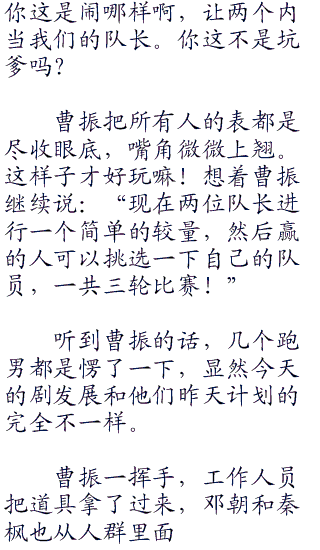 你这是闹哪样啊，让两个内
当我们的队长。你这不是坑
爹吗？
曹振把所有人的表都是
尽收眼底，嘴角微微上翘。
这样子才好玩嘛！想着曹振
继续说：“现在两位队长进
行一个简单的较量，然后赢
的人可以挑选一下自己的队
员，一共三轮比赛！”
听到曹振的话，几个跑
男都是愣了一下，显然今天
的剧发展和他们昨天计划的
完全不一样。
曹振一挥手，工作人员
把道具拿了过来，邓朝和秦
枫也从人群里面